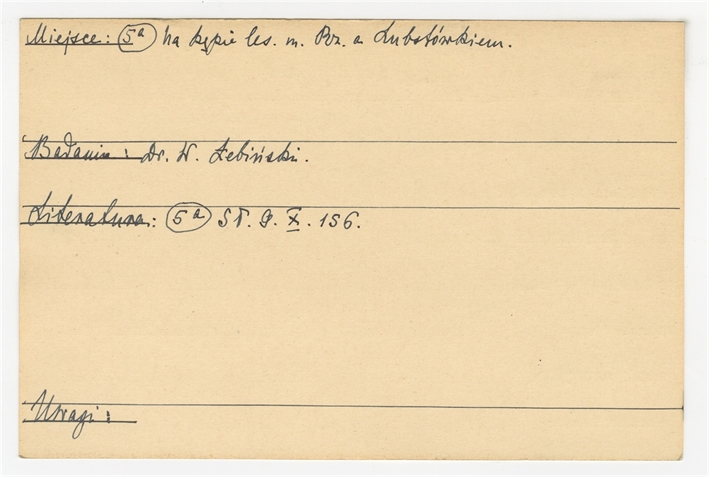 Miejsce: 5a na kępie les. m. Bz. a Lubstówkiem.
Badania: Dr. W. Łebiński.
Literatura: 5a ST. G. X. 156.
Uwagi: